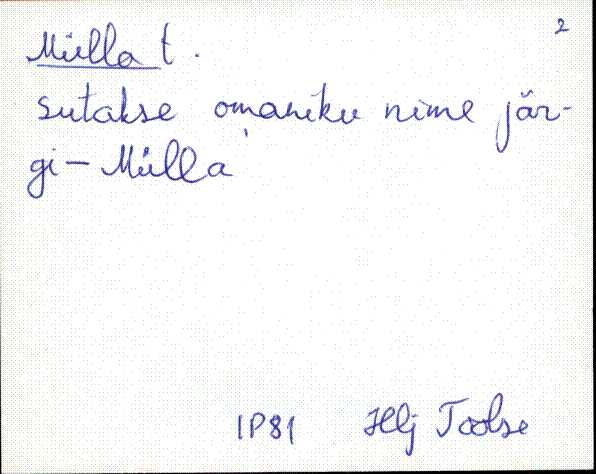 2
Mülla t.
sutakse omaniku nime jär-
gi – Mülla
IP81 Hlj Toolse